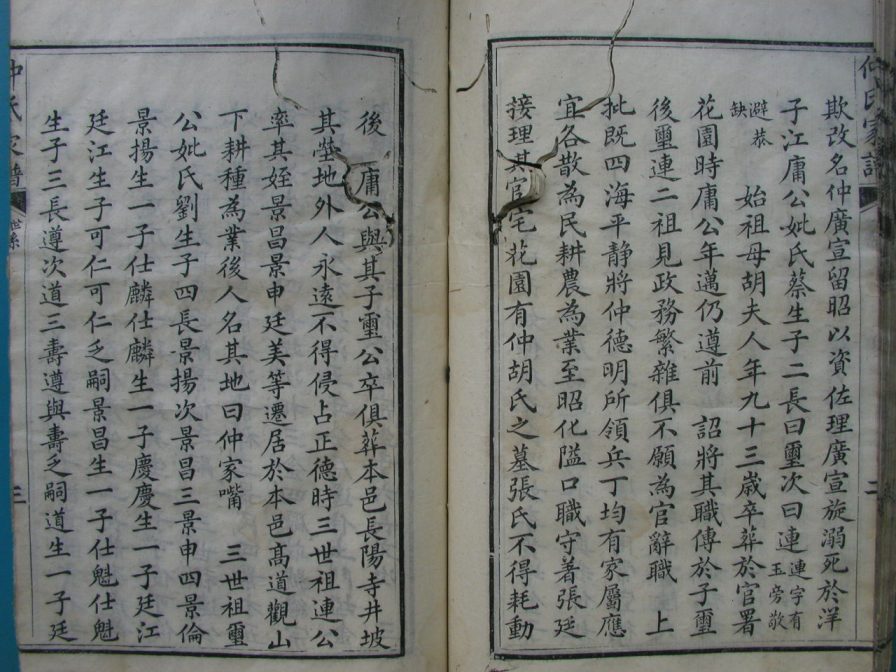 仲氏家譜
二
欺改名仲廣宣留昭以資佐理廣宣旋溺死於洋
子江庸公妣氏蔡生子二長曰璽次曰連連字有玉旁敬
避恭缺 始祖母胡夫人年九十三歲卒葬於官署
花園時庸公年邁仍遵前 詔將其職傳於子璽
後璽連二祖見政務繁雜俱不願為官辭職 上
批既四海平靜將仲德明所領兵丁均有家屬應
宜各散為民耕農為業至昭化隘口職守著張廷
接理其官宅花園有仲胡氏之墓張氏不得耗動
後 庸公與其子璽公卒俱葬本邑長陽寺井坡
其塋地外人永遠不得侵占正德時三世祖連公
率其姪景昌景申廷美等遷居於本邑高道觀山
下耕種為業後人名其地曰仲家嘴 三世祖璽
公妣氏劉生子四長景揚次景昌三景申四景倫
景揚生一子仕麟仕麟生一子慶慶生一子廷江
廷江生子可仁可仁乏嗣景昌生一子仕魁仕魁
生子三長遵次道三壽遵與壽乏嗣道生一子廷
仲氏家譜
世系
三